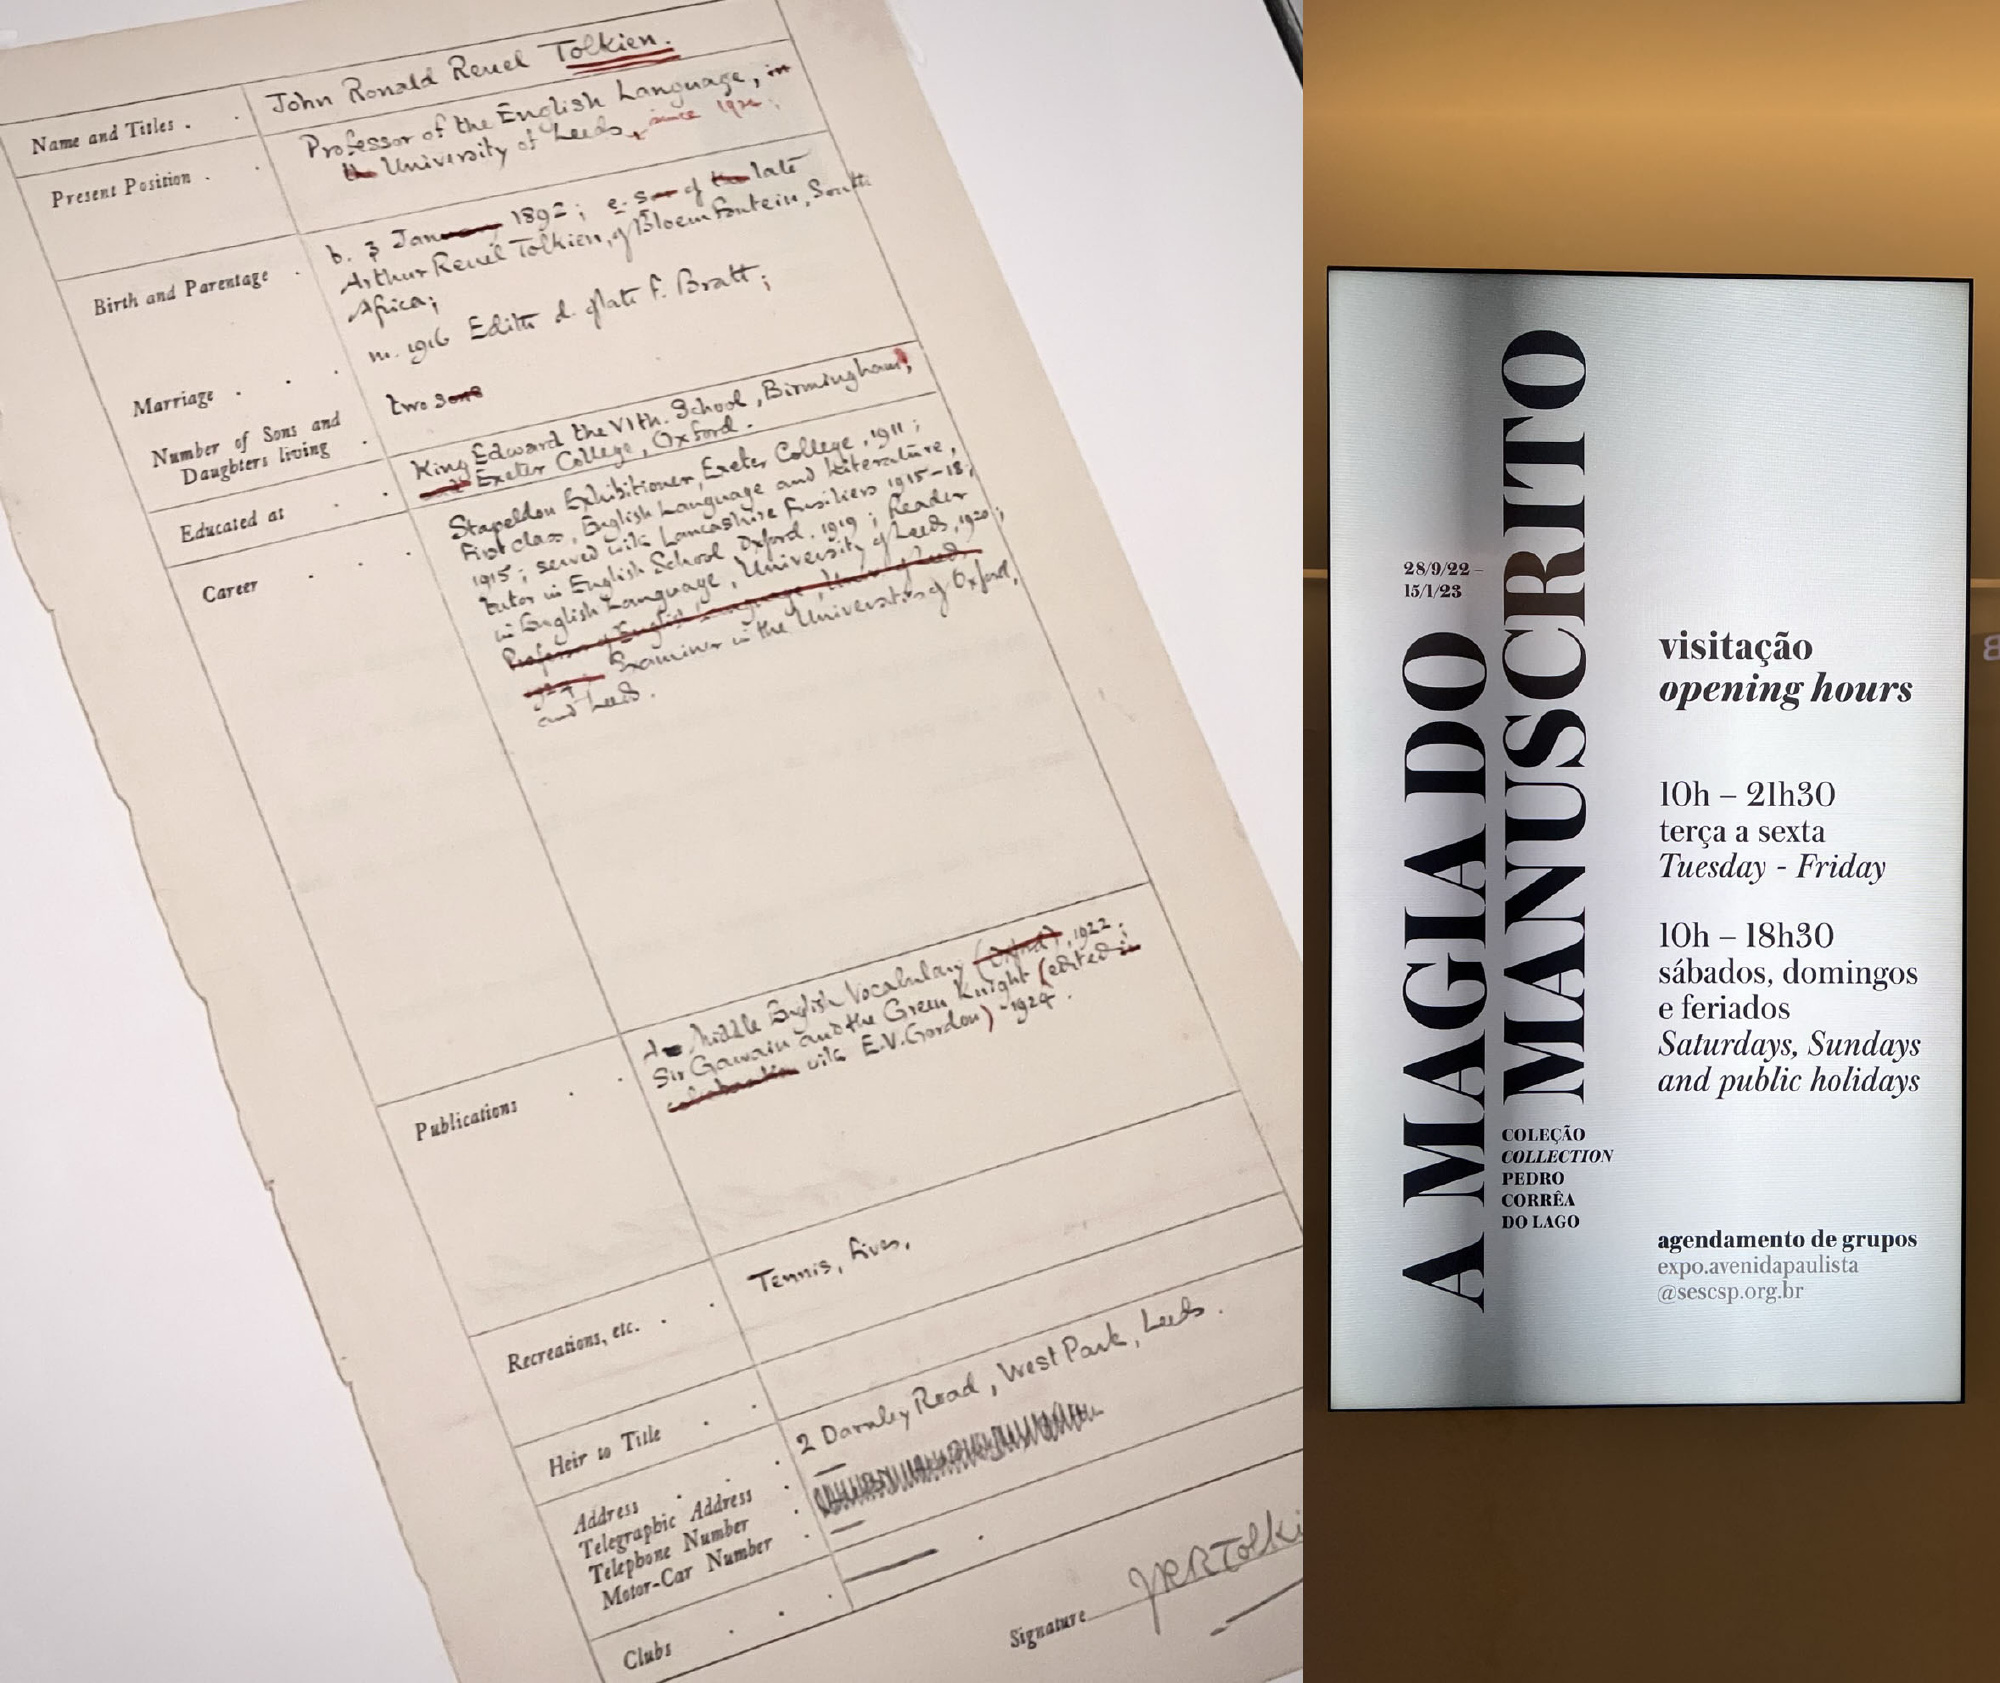 Name and Titles . .
John Ronald Reuel Tolkien.
Present Position . .
Professor of the English Language, in
the University of Leeds, since 1924;
Birth and Parentage .
b. 3 January 1892; e. son of the late
Arthur Reuel Tolkien, of Bloemfontein, South
Africa;
Marriage . . .
m. 1916 Edith d. of late F. Bratt;
Number of Sons and
Daughters living .
two sons
Educated at . .
King Edward the VIth. School, Birmingham;
and Exeter College, Oxford.
Career . . .
Stapeldon Exhibitioner, Exeter College, 1911;
First class, English Language and Literature,
1915; served with Lancashire Fusiliers 1915-18;
tutor in English School Oxford, 1919; Reader
in English Language, University of Leeds, 1920;
Professor of English Language, Univ. of Leeds
1924. Examiner in the Universities of Oxford,
and Leeds.
Publications . .
A Middle English Vocabulary (Oxford), 1922;
Sir Gawain and the Green Knight (edited in
collaboration with E.V. Gordon) - 1924.
Recreations, etc. . .
Tennis, Fives,
Heir to Title . .
Address . .
2 Darnley Road, West Park, Leeds.
Telegraphic Address .
Telephone Number .
Motor-Car Number .
Clubs . .
Signature
JRRTolki
28/9/22 –
15/1/23
A MAGIA DO
MANUSCRITO
COLEÇÃO
COLLECTION
PEDRO
CORRÊA
DO LAGO
visitação
opening hours
10h – 21h30
terça a sexta
Tuesday - Friday
10h – 18h30
sábados, domingos
e feriados
Saturdays, Sundays
and public holidays
agendamento de grupos
expo.avenidapaulista
@sescsp.org.br